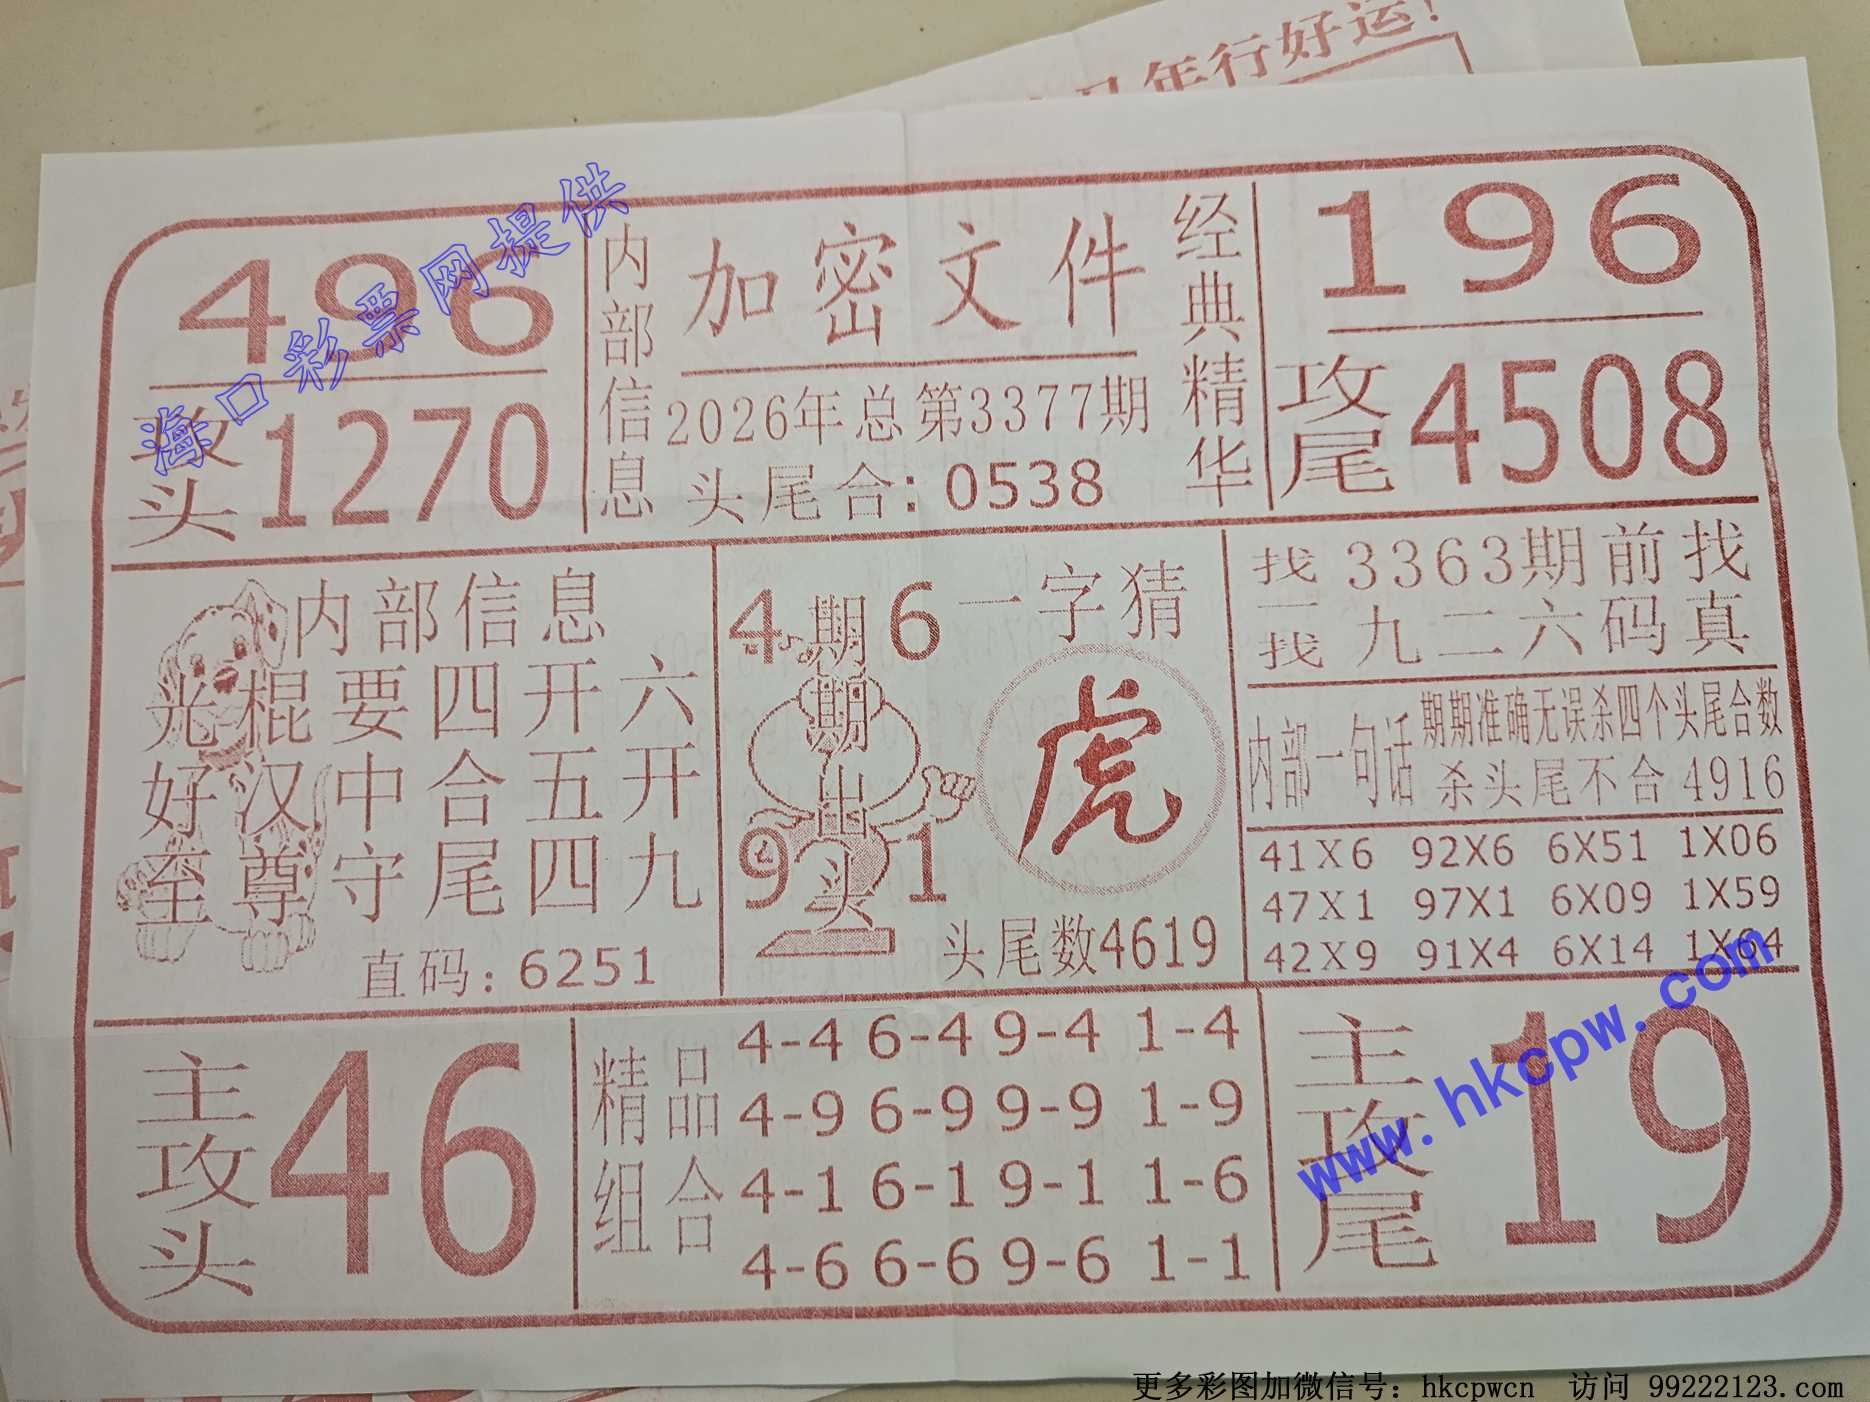 年行好运!
496
攻头 1270
内部信息
加密文件
2026年总第3377期
头尾合:0538
经典精华
196
攻尾 4508
海口彩票网提供
内部信息
光棍要四开六
好汉中合五开
至尊守尾四九
直码:6251
4 6
期期出头
9 1
一字猜
虎
头尾数4619
找一找
3363期前找
九二六码真
内部一句话
期期准确无误杀四个头尾合数
杀头尾不合4916
41X6 92X6 6X51 1X06
47X1 97X1 6X09 1X59
42X9 91X4 6X14 1X64
主攻头 46
精品组合
4-4 6-4 9-4 1-4
4-9 6-9 9-9 1-9
4-1 6-1 9-1 1-6
4-6 6-6 9-6 1-1
主攻尾 19
www.hkcpw.com
更多彩图加微信号:hkcpwcn 访问 99222123.com